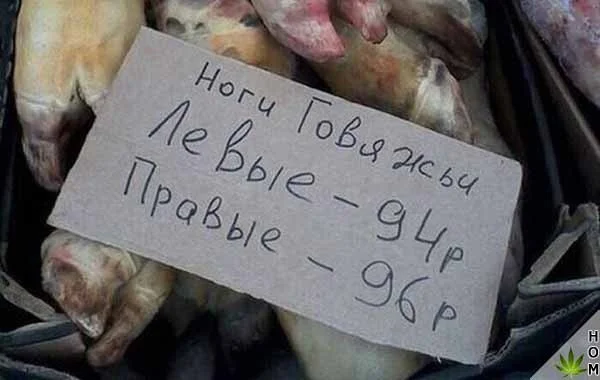 Ноги Говяжьи
Левые - 94р
Правые - 96р
НОМ